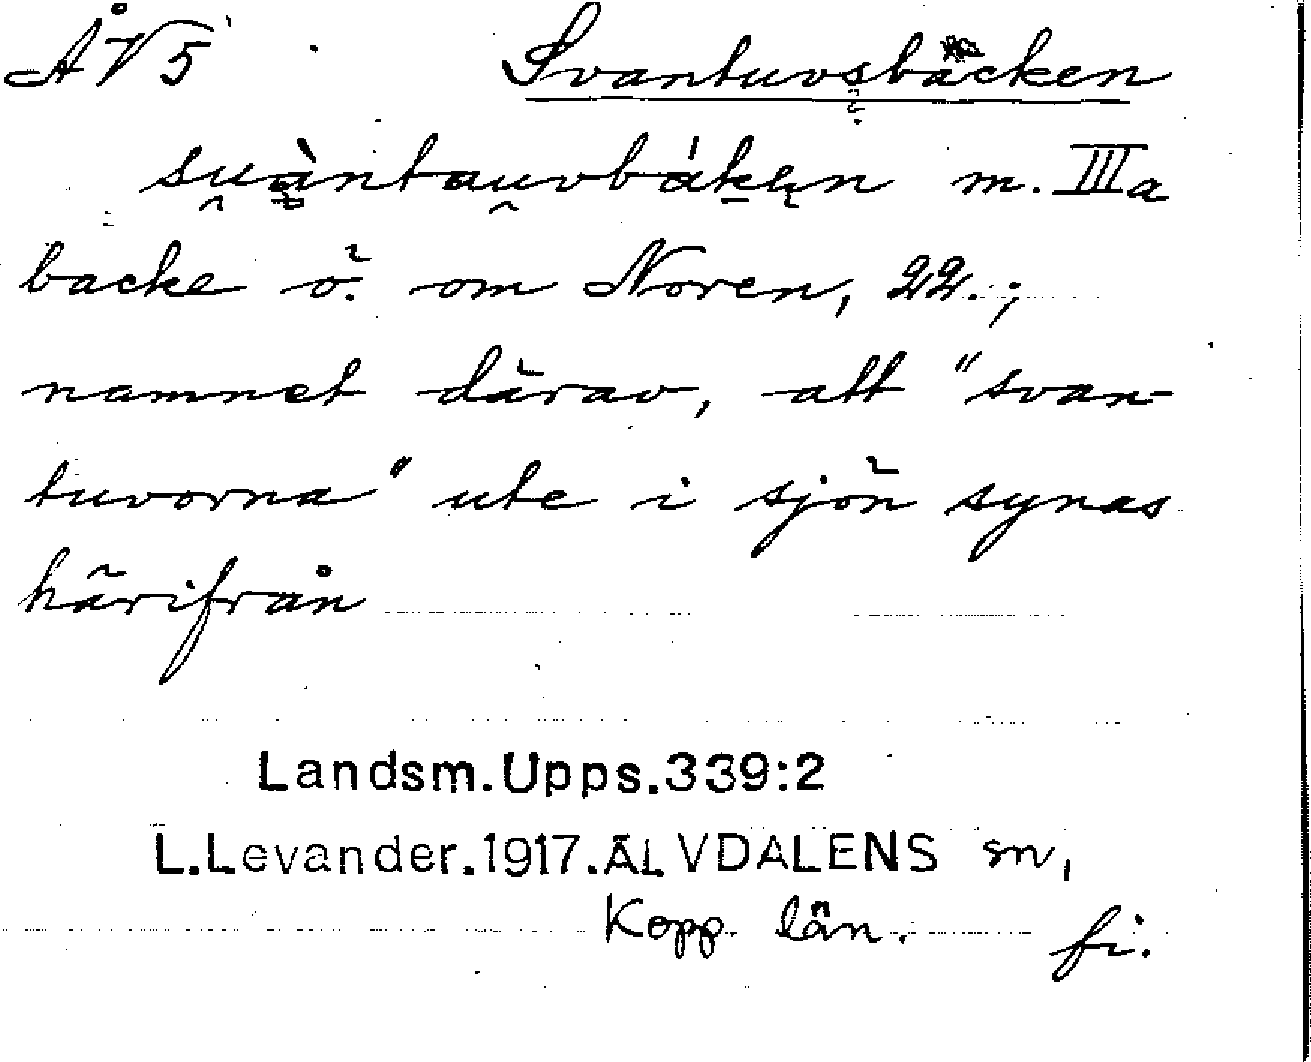 ÅV5 Svantuvsbäcken
su̯àntau̯vbáken m. IIIa
backe ö. om Noren, 22.;
namnet därav, att "svan-
tuvorna" ute i sjön synas
härifrån
Landsm.Upps.339:2
L.Levander.1917.ÄLVDALENS sn,
Kopp. län. fi.